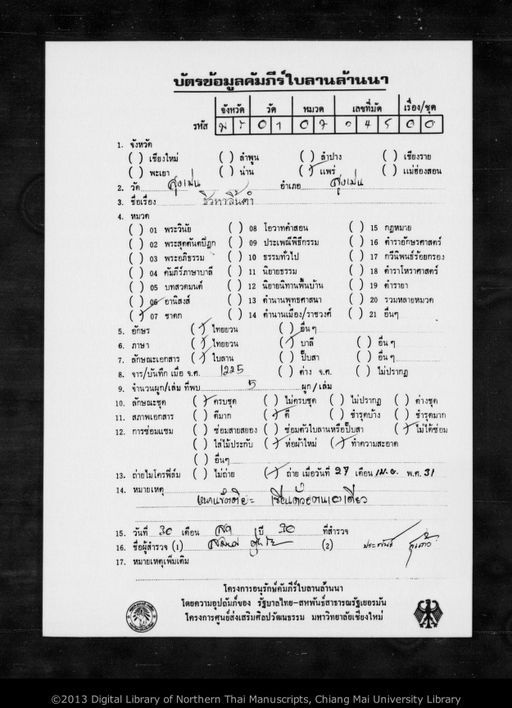 บัตรข้อมูลคัมภีร์ใบลานล้านนา
จังหวัด วัด หมวด เลขที่มัด เรื่อง/ชุด
รหัส 01 07 045 00
1. จังหวัด
( ) เชียงใหม่ ( ) ลำพูน ( ) ลำปาง ( ) เชียงราย
( ) พะเยา ( ) น่าน (/) แพร่ ( ) แม่ฮ่องสอน
2. วัด สูงเม่น อำเภอ สูงเม่น
3. ชื่อเรื่อง
4. หมวด
( ) 01 พระวินัย ( ) 08 โอวาทคำสอน ( ) 15 กฎหมาย
( ) 02 พระสุตตันตปิฎก ( ) 09 ประเพณีพิธีกรรม ( ) 16 ตำราอักษรศาสตร์
( ) 03 พระอภิธรรม ( ) 10 ธรรมทั่วไป ( ) 17 กวีนิพนธ์ร้อยกรอง
( ) 04 คัมภีร์ภาษาบาลี ( ) 11 นิยายธรรม ( ) 18 ตำราโหราศาสตร์
( ) 05 บทสวดมนต์ ( ) 12 นิยายนิทานพื้นบ้าน ( ) 19 ตำรายา
( ) 06 อานิสงส์ ( ) 13 ตำนานพุทธศาสนา ( ) 20 รวมหลายหมวด
(/) 07 ชาดก ( ) 14 ตำนานเมือง/ราชวงศ์ ( ) 21 อื่นๆ
5. อักษร (/) ไทยยวน ( ) อื่นๆ
6. ภาษา (/) ไทยยวน (/) บาลี ( ) อื่นๆ
7. ลักษณะเอกสาร (/) ใบลาน ( ) ปั๊บสา ( ) อื่นๆ
8. จาร/บันทึก เมื่อ จ.ศ. 1225 ( ) ต่าง จ.ศ. ( ) ไม่ปรากฏ
9. จำนวนผูก/เล่ม ที่พบ 5 ผูก/เล่ม
10. ลักษณะชุด (/) ครบชุด ( ) ไม่ครบชุด ( ) ไม่ปรากฏ ( ) ต่างชุด
11. สภาพเอกสาร ( ) ดีมาก (/) ดี ( ) ชำรุดบ้าง ( ) ชำรุดมาก
12. การซ่อมแซม ( ) ซ่อมสายสยอง ( ) ซ่อมตัวใบลานหรือปั๊บสา (/) ไม่ได้ซ่อม
( ) ใส่ไม้ประกับ (/) ห่อผ้าใหม่ (/) ทำความสะอาด
( ) อื่นๆ
13. ถ่ายไมโครฟิล์ม ( ) ไม่ถ่าย (/) ถ่าย เมื่อวันที่ 27 เดือน เม.ย. พ.ศ. 31
14. หมายเหตุ
15. วันที่ 20 เดือน ปี 30 ที่สำรวจ
16. ชื่อผู้สำรวจ (1) (2)
17. หมายเหตุเพิ่มเติม
โครงการอนุรักษ์คัมภีร์ใบลานล้านนา
โดยความอุปถัมภ์ของ รัฐบาลไทย-สหพันธ์สาธารณรัฐเยอรมัน
โครงการศูนย์ส่งเสริมศิลปวัฒนธรรม มหาวิทยาลัยเชียงใหม่
©2013 Digital Library of Northern Thai Manuscripts, Chiang Mai University Library